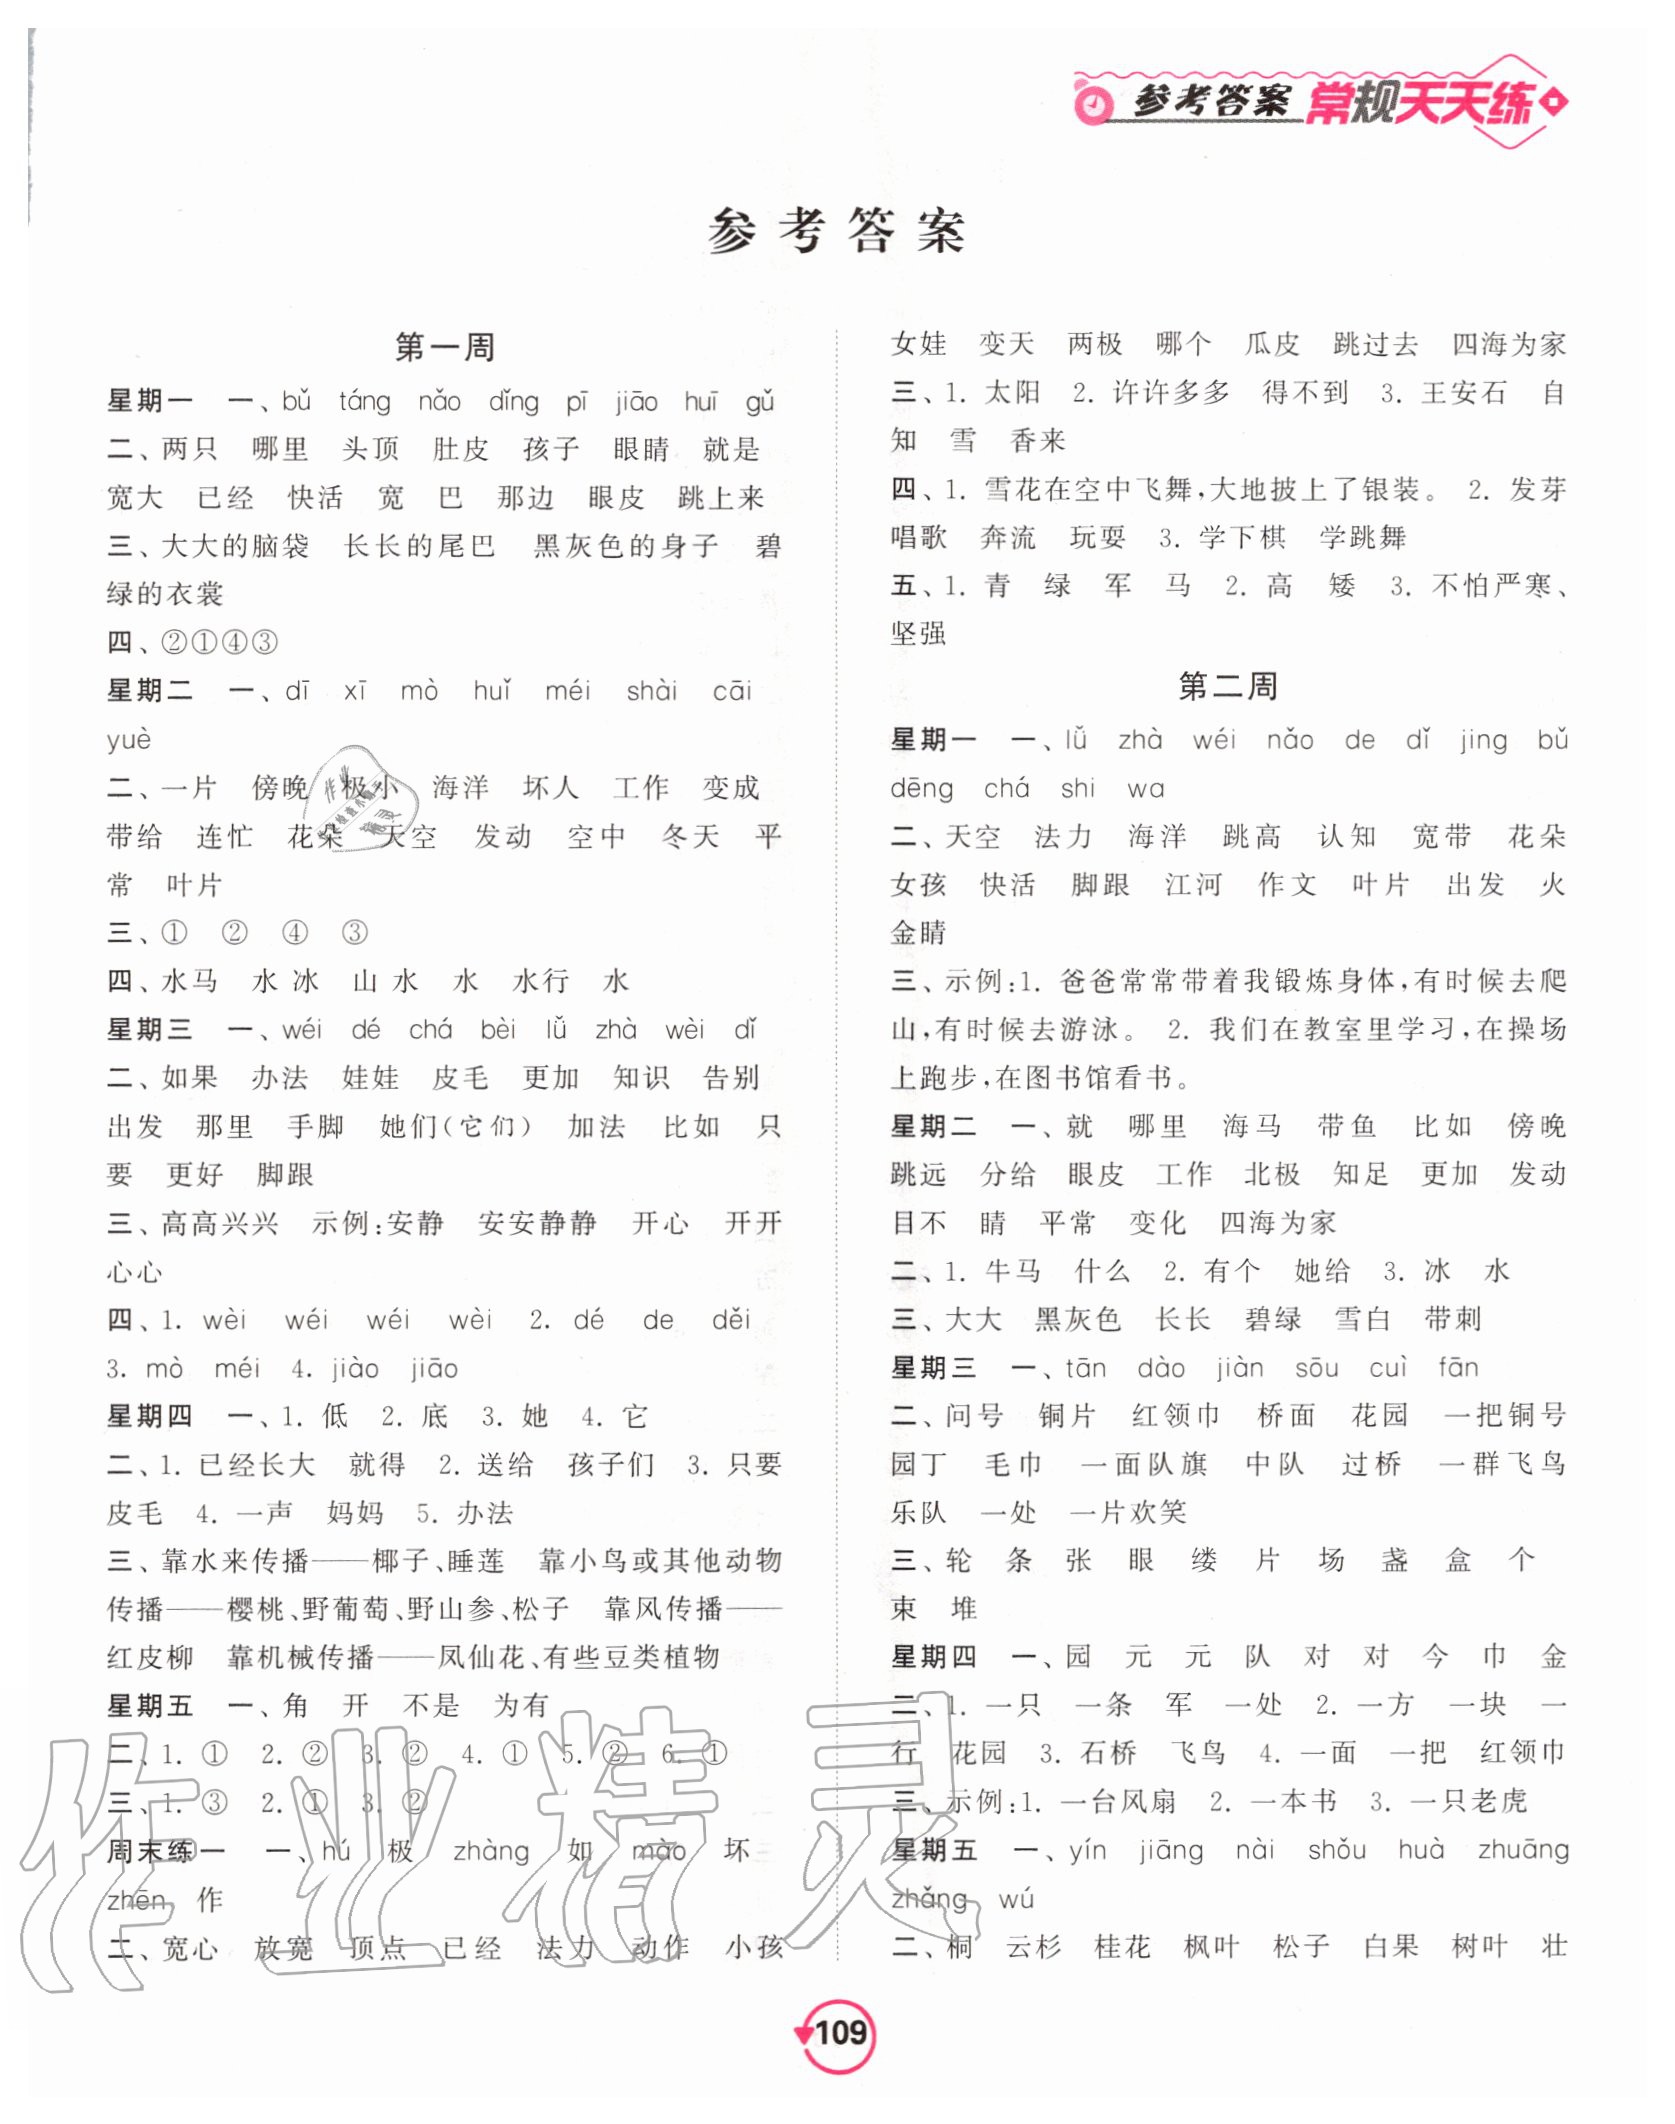 参考答案 常规天天练
参考答案
第一周
星期一 一、bǔ táng nǎo dǐng pī jiāo huī gǔ
二、两只 哪里 头顶 肚皮 孩子 眼睛 就是
宽大 已经 快活 宽 巴 那边 眼皮 跳上来
三、大大的脑袋 长长的尾巴 黑灰色的身子 碧
绿的衣裳
四、②①④③
星期二 一、dī xī mò huǐ méi shài cāi
yuè
二、一片 傍晚 极小 海洋 坏人 工作 变成
带给 连忙 花朵 天空 发动 空中 冬天 平
常 叶片
三、① ② ④ ③
四、水马 水冰 山水 水 水行 水
星期三 一、wéi dé chá bèi lǔ zhà wèi dǐ
二、如果 办法 娃娃 皮毛 更加 知识 告别
出发 那里 手脚 她们(它们) 加法 比如 只
要 更好 脚跟
三、高高兴兴 示例:安静 安安静静 开心 开开
心心
四、1. wèi wéi wéi wèi 2. dé de děi
3. mò méi 4. jiào jiāo
星期四 一、1. 低 2. 底 3. 她 4. 它
二、1. 已经长大 就得 2. 送给 孩子们 3. 只要
皮毛 4. 一声 妈妈 5. 办法
三、靠水来传播——椰子、睡莲 靠小鸟或其他动物
传播——樱桃、野葡萄、野山参、松子 靠风传播——
红皮柳 靠机械传播——凤仙花、有些豆类植物
星期五 一、角 开 不是 为有
二、1. ① 2. ② 3. ② 4. ① 5. ② 6. ①
三、1. ③ 2. ① 3. ②
周末练一 一、hú 极 zhàng 如 mào 坏
zhēn 作
二、宽心 放宽 顶点 已经 法力 动作 小孩
女娃 变天 两极 哪个 瓜皮 跳过去 四海为家
三、1. 太阳 2. 许许多多 得不到 3. 王安石 自
知 雪 香来
四、1. 雪花在空中飞舞,大地披上了银装。 2. 发芽
唱歌 奔流 玩耍 3. 学下棋 学跳舞
五、1. 青 绿 军 马 2. 高 矮 3. 不怕严寒、
坚强
第二周
星期一 一、lǔ zhà wéi nǎo de dǐ jing bǔ
dēng chá shi wa
二、天空 法力 海洋 跳高 认知 宽带 花朵
女孩 快活 脚跟 江河 作文 叶片 出发 火
金睛
三、示例:1. 爸爸常常带着我锻炼身体,有时候去爬
山,有时候去游泳。 2. 我们在教室里学习,在操场
上跑步,在图书馆看书。
星期二 一、就 哪里 海马 带鱼 比如 傍晚
跳远 分给 眼皮 工作 北极 知足 更加 发动
目不 睛 平常 变化 四海为家
二、1. 牛马 什么 2. 有个 她给 3. 冰 水
三、大大 黑灰色 长长 碧绿 雪白 带刺
星期三 一、tān dào jiàn sōu cuì fān
二、问号 铜片 红领巾 桥面 花园 一把铜号
园丁 毛巾 一面队旗 中队 过桥 一群飞鸟
乐队 一处 一片欢笑
三、轮 条 张 眼 缕 片 场 盏 盒 个
束 堆
星期四 一、园 元 元 队 对 对 今 巾 金
二、1. 一只 一条 军 一处 2. 一方 一块 一
行 花园 3. 石桥 飞鸟 4. 一面 一把 红领巾
三、示例:1. 一台风扇 2. 一本书 3. 一只老虎
星期五 一、yín jiāng nài shǒu huà zhuāng
zhǎng wú
二、桐 云杉 桂花 枫叶 松子 白果 树叶 壮
109
作业精灵